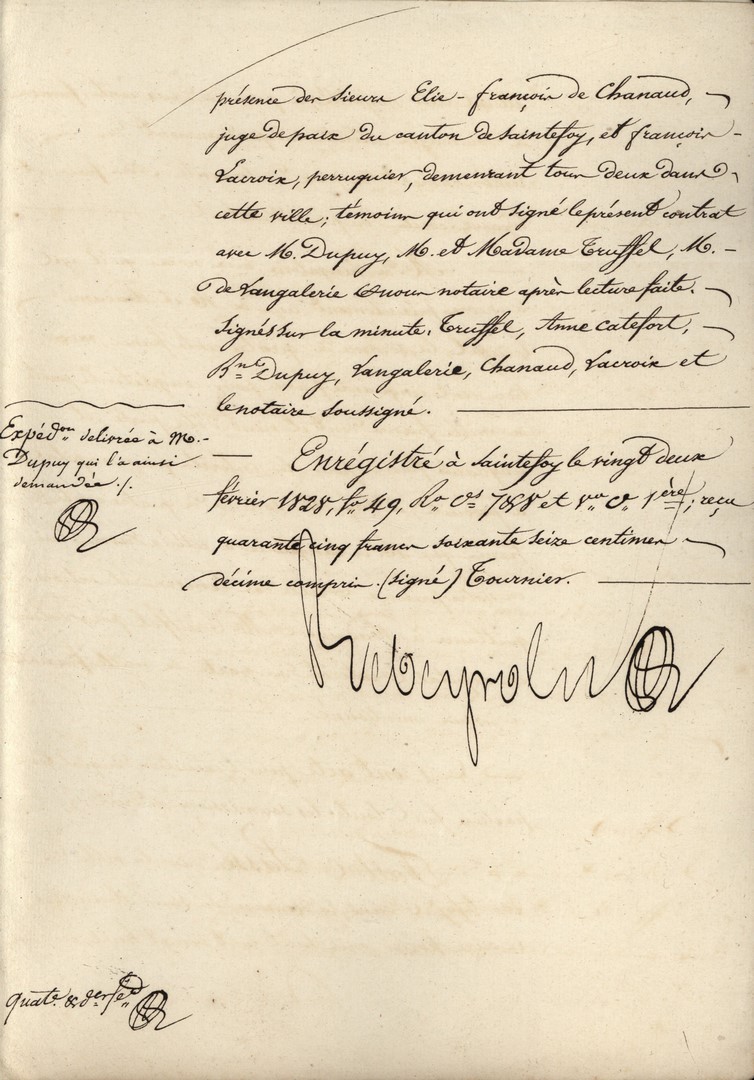 présence des sieurs Elie - françois de Chanaud,
juge de paix du canton de Saintefoy, et françois -
Lacroix, perruquier, demeurant tous deux dans
cette ville; témoins qui ont signé le présent contrat
avec M. Dupuy, M. et Madame Truffel, M. -
de Langalerie & nous notaire après lecture faite.
Signés sur la minute. Truffel, Anne Catefort,
Bn. Dupuy, Langalerie, Chanaud, Lacroix et
le notaire soussigné.
Expédon. délivrée à M. -
Dupuy qui l'a ainsi
demandée ./.
Enrégistré à Saintefoy le vingt deux
février 1828, fo 49, Ro. Cs. 7 & 8 et vo. C. 1ère, reçu
quarante cinq francs soixante seize centimes
décime compris. (signé) Tournier.
Rebeyrolle
quate. & der.